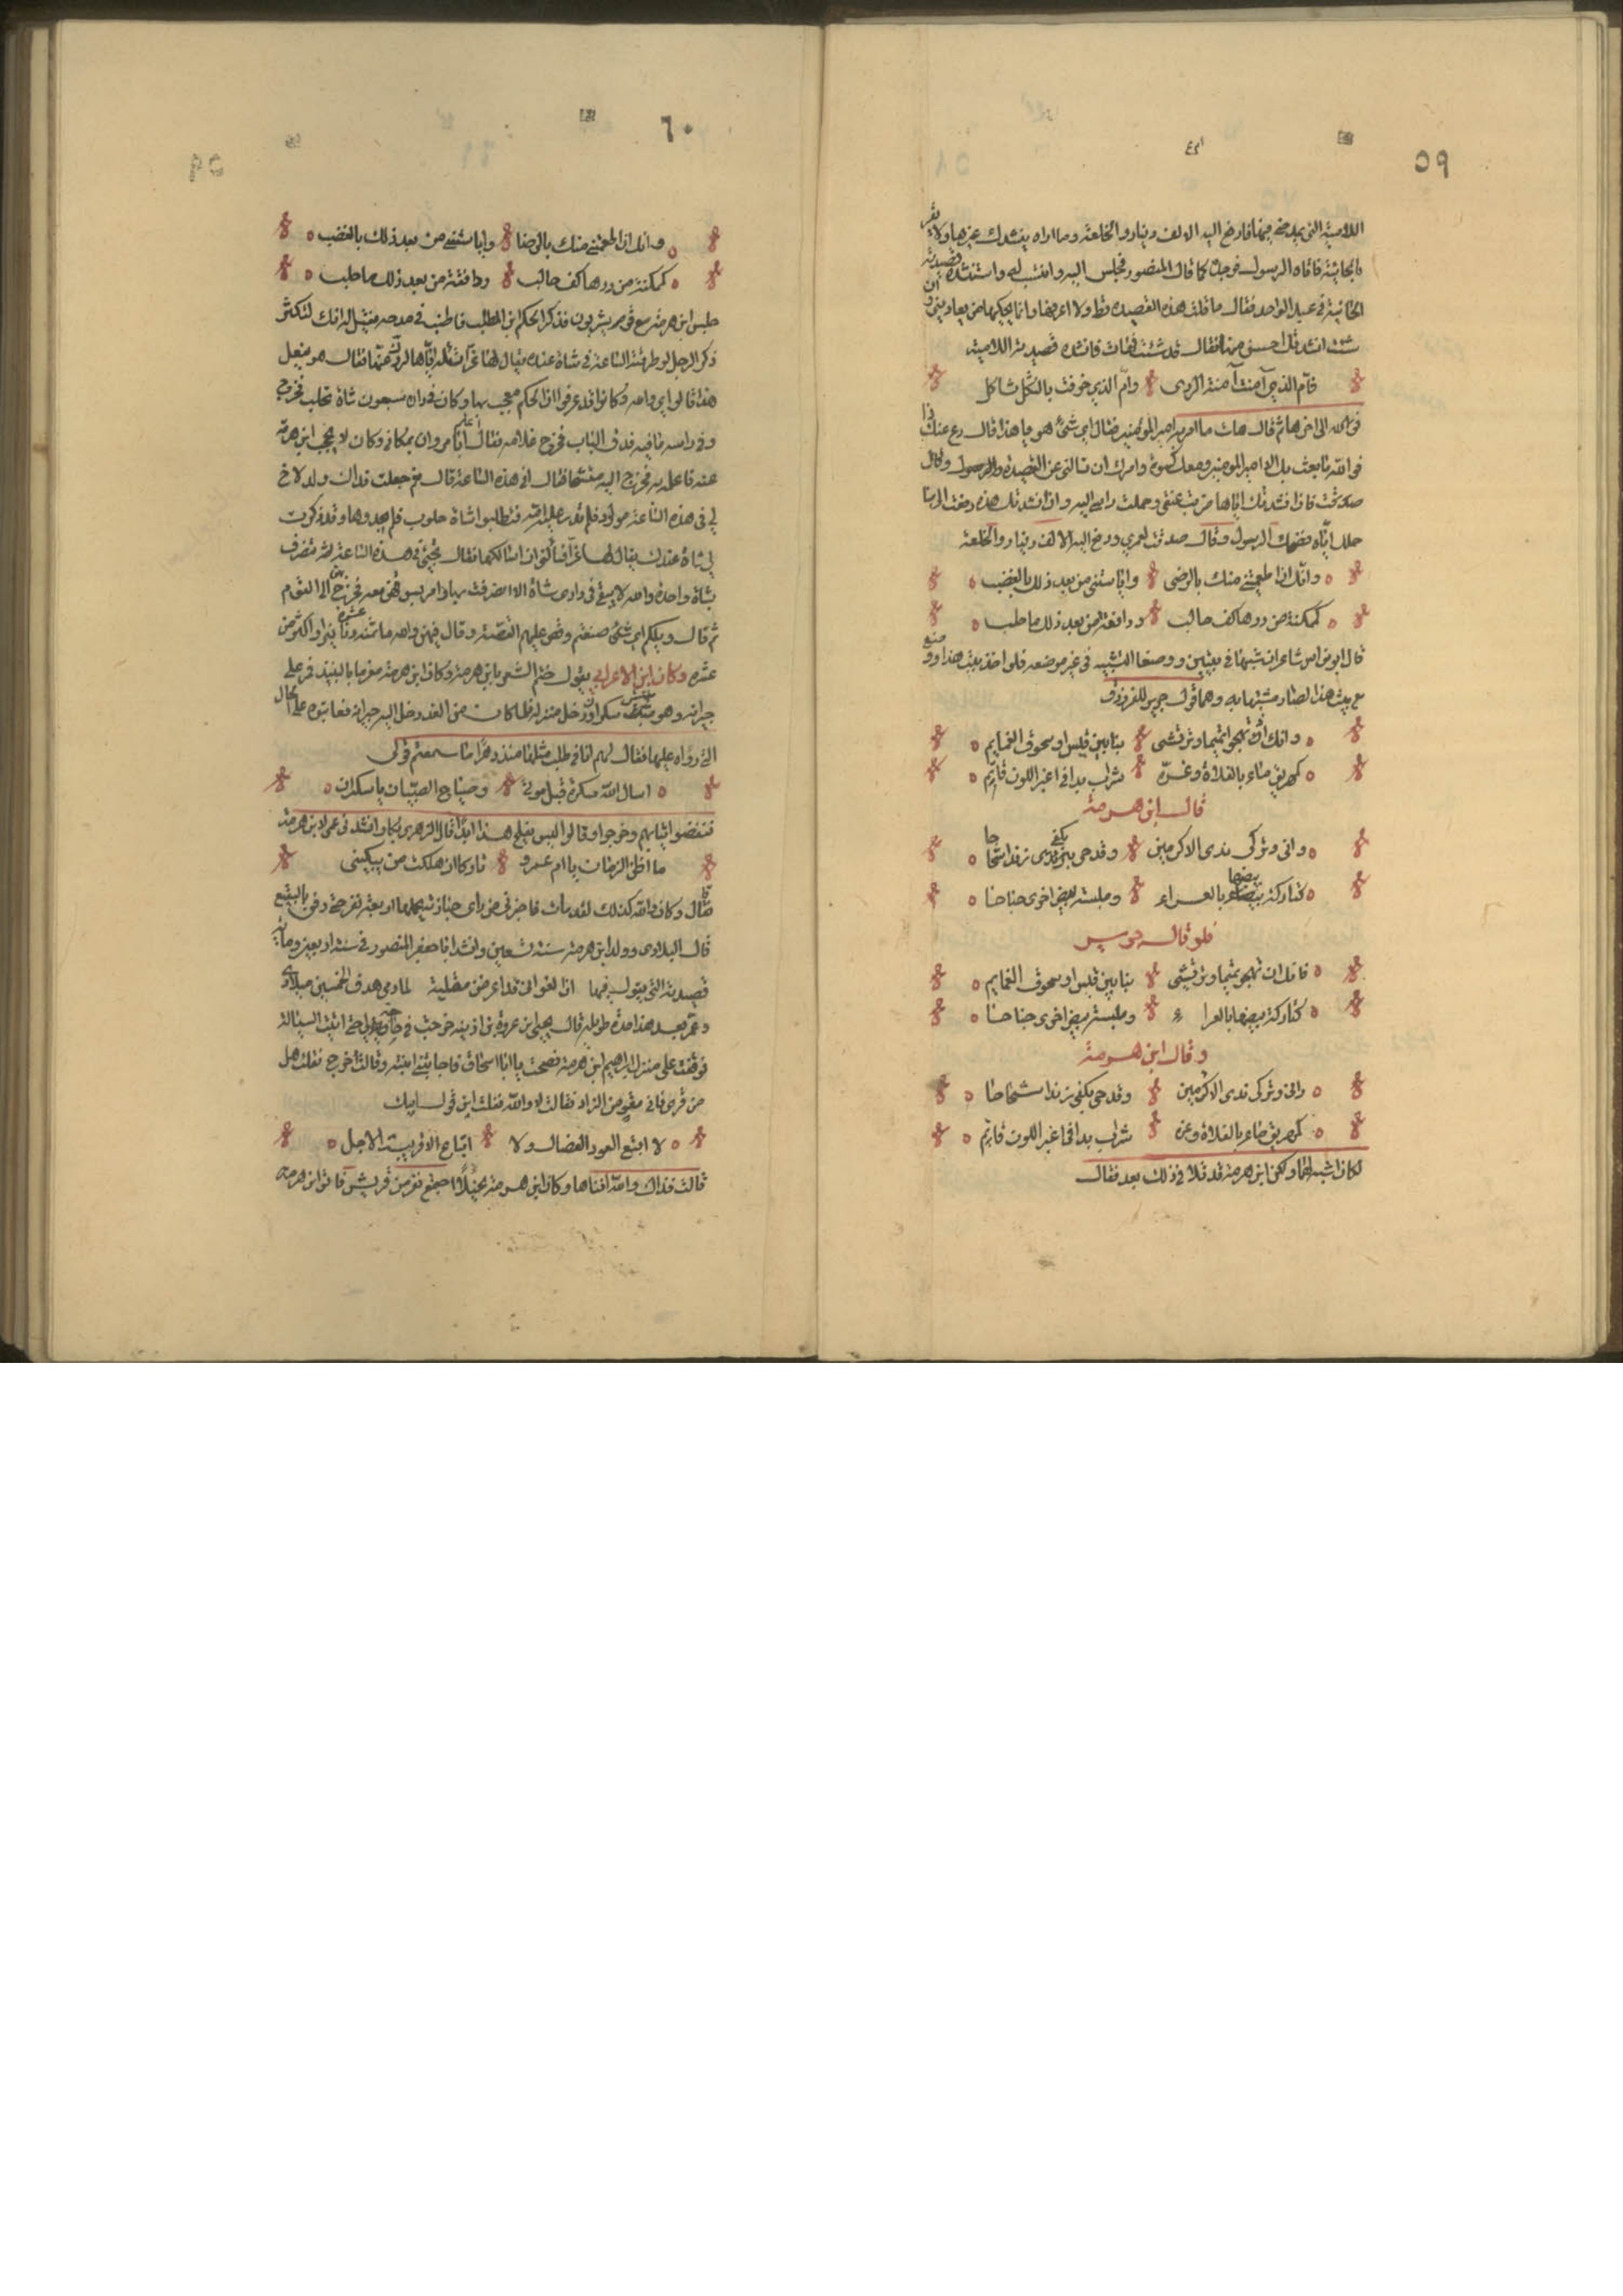 ٥٩
اللامية التي يمدحني فيها فادفع اليه الالف دينار والخلعة وما اراه ينشدك غيرها ولا يقر
بالحائية فاتاه الرسول فوجده كما قال المنصور فجلس اليه وانتسب له واستنشده قصيدته
الحائية في عبد الواحد فقال ما قلت هذه القصيدة قط ولا اعرفها وانما يحكيها من يعاديني وان
شئت انشدتك احسن منها فقال قد شئت فهات فانشده قصيدته اللامية
فام الذي آمنت آمنة الردى وام الذي خوفت بالثكل ثاكل
الى اخرها ثم قال هات ما امر به امير المؤمنين فقال اي شيء هو يا هذا قال دع عنك ذا
فوالله ما بعث بك الا امير المومنين ومعك كسوة وامرك ان تسالني عن القصيدة
صدقت فان انشدتك اياها ضربت عنقي وحملت راسي اليه وان انشدتك هذه دفعت الي ما
حملك اياه فضحك الرسول وقال صدقت لعمري ودفع اليه الالف دينار والخلعة
وانك اذ اطمعتني منك بالرضى وايأستني من بعد ذلك بالغضب
كممكنة من درها كف حالب ودافقة من بعد ذلك ما حلب
قال ابو نواس شاعران شبها في بيتين ووضعا التشبيه في غير موضعه فلو اخذ بيت هذا ووضع
مع بيت هذا لصار مشتبها به وهما قول جرير للفرزدق
وانك ان تهجو تميما وترتشي بتأبين قيس او سحوق العمايم
كمهريق ماء بالفلاة وغره سراب بدا في اغبر اللون قاتم
قال ابن هرمة
واني وتركي ندى الاكرمين وقدحي بكفي زندا شحاحا
كتاركة بيضها بالعراء وملبسة بيض اخرى جناحا
فلو قال جرير
فانك ان تهجو تميما وترتشي بتأبين قيس او سحوق العمايم
كتاركة بيضها بالعراء وملبسة بيض اخرى جناحا
وقال ابن هرمة
واني وتركي ندى الاكرمين وقدحي بكفي زندا شحاحا
كمهريق ماء بالفلاة وغره سراب بدا في اغبر اللون قاتم
لكان اشبه لهما ولكن ابن هرمة قد تلا في ذلك بعد فقال
٦٠
وانك اذ اطمعتني منك بالرضا وايأستني من بعد ذلك بالغضب
كممكنة من درها كف حالب ودافقة من بعد ذلك ما حلب
جلس ابن هرمة مع قوم يشربون فذكر الحكم ابن المطلب فاطنب في مدحه فقيل له انك لتكثر
ذكر الرجل لو طرقته الساعة في شاة عنده يقال لها غراء تسأله اياها لردك عنها فقال هو يفعل
هذا قالوا اي والله وكانوا قد عرفوا ان الحكم معجب بها وكان في داره سبعون شاة تحلب فخرج
وفي راسه ما فيه فدق الباب فخرج غلامه فقال اعلم ابا مروان بمكاني وكان لا يحجب ابن هرمة
عنه فاعلمه به فخرج اليه متشحا فقال افي هذه الساعة قال نعم جعلت فداك ولد لاخ
لي في هذه الساعة مولود فلم تدر عليه امه فتطلبوا شاة حلوب فلم يجدوها وقد ذكروا
لي شاة عندك يقال لها غراء فسألوني ان اسالكها فقال تجيء في هذه الساعة ثم تنصرف
بشاة واحدة والله لا يبقى في داري شاة الا انصرفت بها وامر بسوقهن معه فخرج بهن الى القوم
ثم قال ويلكم اي شيء صنعتم وقص عليهم القصة وقال فيهن والله ما ثمنه عشرة دنانير او اكثر من
عشرة وكان ابن الاعرابي يقول ختم الشعر بابن هرمة وكان ابن هرمة مغرما بالنبيذ فمر على
جيرانه وهو سكران فدخل منزله فلما كان من الغد دخل اليه جيرانه فعاتبوه على الحال
التي رواه عليها فقال لهم انا في طلب مثلها منذ دهر اما سمعتم قولي
اسال الله سكرة قبل موتي وصياح الصبيان يا سكران
فنفضوا ثيابهم وخرجوا وقالوا ليس يفلح هذا ابدا قال الزهري بكار وانشدني عمي لابن هرمة
ما اظن الزمان يا ام عمرو تاركا ان هلكت من يبكيني
قال وكان والله كذلك لقد مات فاخبرني من راى جنازته يحملها اربعة نفر حتى دفن بالبقيع
قال البلاذري وولد ابن هرمة سنة تسعين وانشد ابا جعفر المنصور في سنة اربعين ومائة
قصيدته التي يقول فيها ان الغواني قد اعرضن مقلية لما رمى هدف الخمسين ميلادي
وعمر بعد هذا مدة طويلة قال يحيى ابن عروة بن اذينة خرجت في حاجة حتى اتيت السيالة
فوقفت على منزل ابراهيم ابن هرمة فصحت يا ابا اسحاق فاجابتني ابنته وقالت خرج فقلت هل
من قرى فاني مقو من الزاد فقالت لا والله فقلت اين قول ابيك
لا امتع العوذ الفصال ولا ابتاع الا قريبة الاجل
قالت فذاك والله افناها وكان ابن هرمة بخيلا اجتمع نفر من قريش فاتوا ابن هرمة